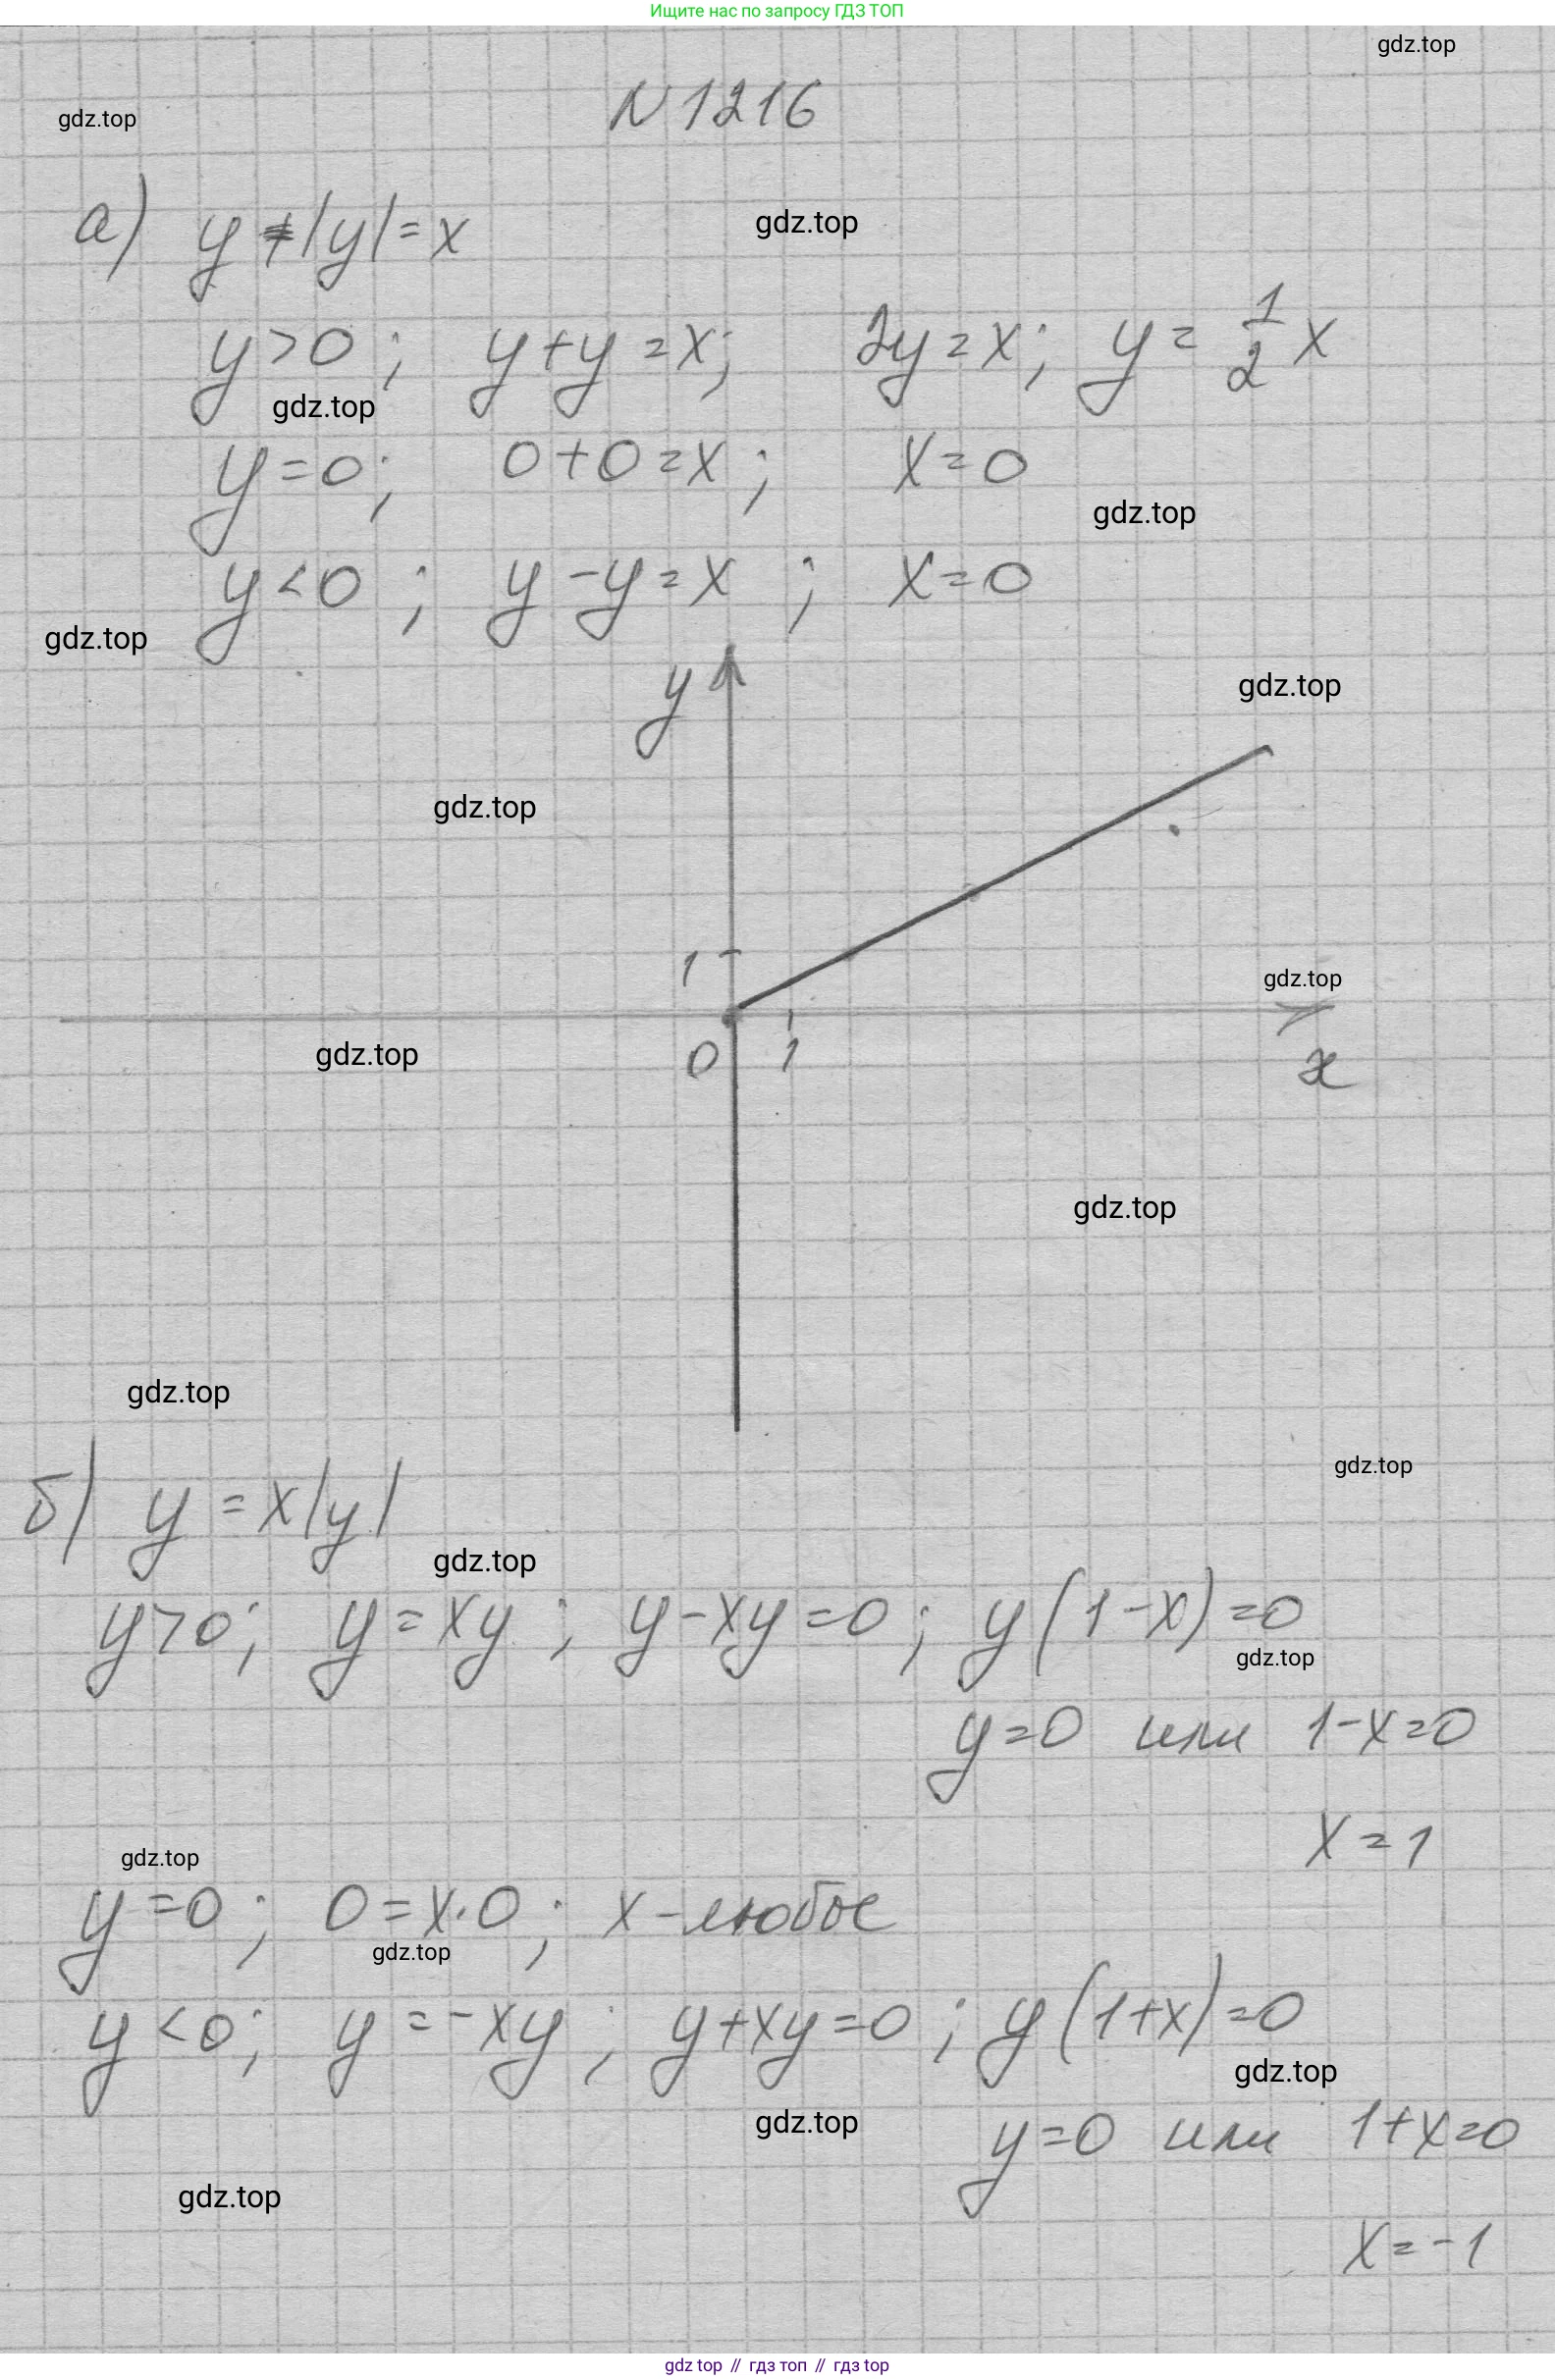 Ищите нас по запросу ГДЗ ТОП
gdz.top
N 1216
gdz.top
а) y + |y| = x
gdz.top
y > 0; y + y = x; 2y = x; y = 1/2 x
gdz.top
y = 0; 0 + 0 = x; x = 0
gdz.top
y < 0; y - y = x; x = 0
gdz.top
y
gdz.top
gdz.top
1
gdz.top
0 1
gdz.top
x
gdz.top
gdz.top
gdz.top
б) y = x|y|
gdz.top
y > 0; y = xy; y - xy = 0; y(1 - x) = 0
gdz.top
y = 0 или 1 - x = 0
x = 1
gdz.top
y = 0; 0 = x · 0; x - любое
gdz.top
y < 0; y = -xy; y + xy = 0; y(1 + x) = 0
gdz.top
gdz.top
y = 0 или 1 + x = 0
gdz.top
x = -1
gdz top // гдз топ // гдз top